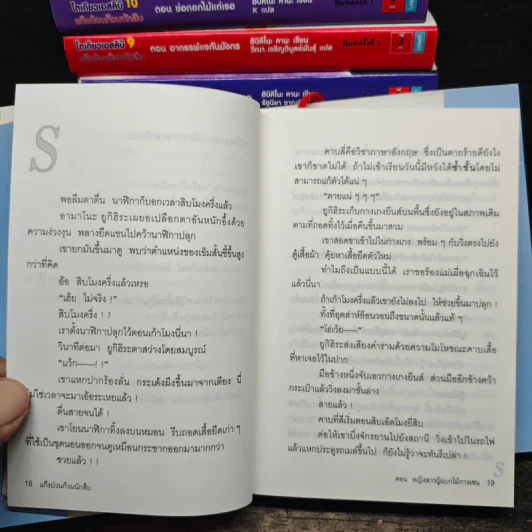 โตเกียวเอสคิป 10
ตอน ช่อดอกไม้แด่เธอ
ฮิบิคิโนะ คานะ เขียน
K แปล
โตเกียวเอสคิป 9
ตอน อาถรรพ์แจกันมังกร
ฮิบิคิโนะ คานะ เขียน
วีณา เจริญวิบุลย์พันธุ์ แปล
พิมพ์ครั้งที่ 1
S
พอลืมตาตื่น นาฬิกาก็บอกเวลาสิบโมงครึ่งแล้ว
อามาโนะ ยูกิฮิระเผยอเปลือกตาอันหนักอึ้งด้วย
ความง่วงงุน พลางยืดแขนไปคว้านาฬิกาปลุก
เขายกมันขึ้นมาดู พบว่าตำแหน่งของเข็มสั้นชี้ขึ้นสูง
กว่าที่คิด
อ้อ สิบโมงครึ่งแล้วเหรอ
"เฮ้ย ไม่จริง !"
สิบโมงครึ่ง ! ?
เราตั้งนาฬิกาปลุกไว้ตอนเก้าโมงนี่นา !
วินาทีต่อมา ยูกิฮิระตาสว่างโดยสมบูรณ์
"แว้ก——! !"
เขาแหกปากร้องลั่น กระเด้งผึงขึ้นมาจากเตียง นี่
ไม่ใช่เวลาจะมาเอ้อระเหยแล้ว !
ตื่นสายจนได้ !
เขาโยนนาฬิกาทิ้งลงบนหมอน รีบถอดเสื้อยืดเก่า ๆ
ที่ใช้เป็นชุดนอนออกจนดูเหมือนกระชากออกมามากกว่า
ซวยแล้ว ! !
18 แก๊งป่วนก๊วนนักสืบ
คาบสี่คือวิชาภาษาอังกฤษ ซึ่งเป็นตายร้ายดียังไง
เขาก็ขาดไม่ได้ ถ้าไม่เข้าเรียนวันนี้มีหวังได้ซ้ำชั้นโดยไม่
สามารถแก้ตัวได้แน่ ๆ
"ตายแน่ ๆ ๆ ๆ"
ยูกิฮิระเก็บกางเกงยีนส์บนพื้นซึ่งยังอยู่ในสภาพเดิม
ตามที่ถอดทิ้งไว้เมื่อคืนขึ้นมาสวม
เขาสอดขาเข้าไปในกางเกง พร้อม ๆ กับวิ่งตรงไปยัง
ตู้เสื้อผ้า คุ้ยหาเสื้อยืดตัวใหม่
ทำไมถึงเป็นแบบนี้ได้ เราขอร้องแม่เมื่อฉุกเฉินไว้
แล้วนี่นา
ถ้าเก้าโมงครึ่งแล้วเขายังไม่ลงไป ให้ช่วยขึ้นมาปลุก !
ทั้งที่อุตส่าห์อ้อนวอนถึงขนาดนั้นแล้วแท้ ๆ
"โธ่เว้ย——"
ยูกิฮิระส่งเสียงคำรามด้วยความโมโหขณะคาบเสื้อ
ที่หาเจอไว้ในปาก
มือข้างหนึ่งจับเอวกางเกงยีนส์ ส่วนมืออีกข้างคว้า
กระเป๋าแล้ววิ่งลงมาชั้นล่าง
สายแล้ว !
คาบที่สี่เริ่มตอนสิบเอ็ดโมงยี่สิบ
ต่อให้เขาปั่งจักรยานไปยังสถานี วิ่งเข้าไปในรถไฟ
แล้วแหกประตูรถเมล์ขึ้นไป ก็ยังไม่รู้ว่าจะทันรึเปล่า !
S
ตอน หญิงสาวผู้แบกไม้กางเขน 19